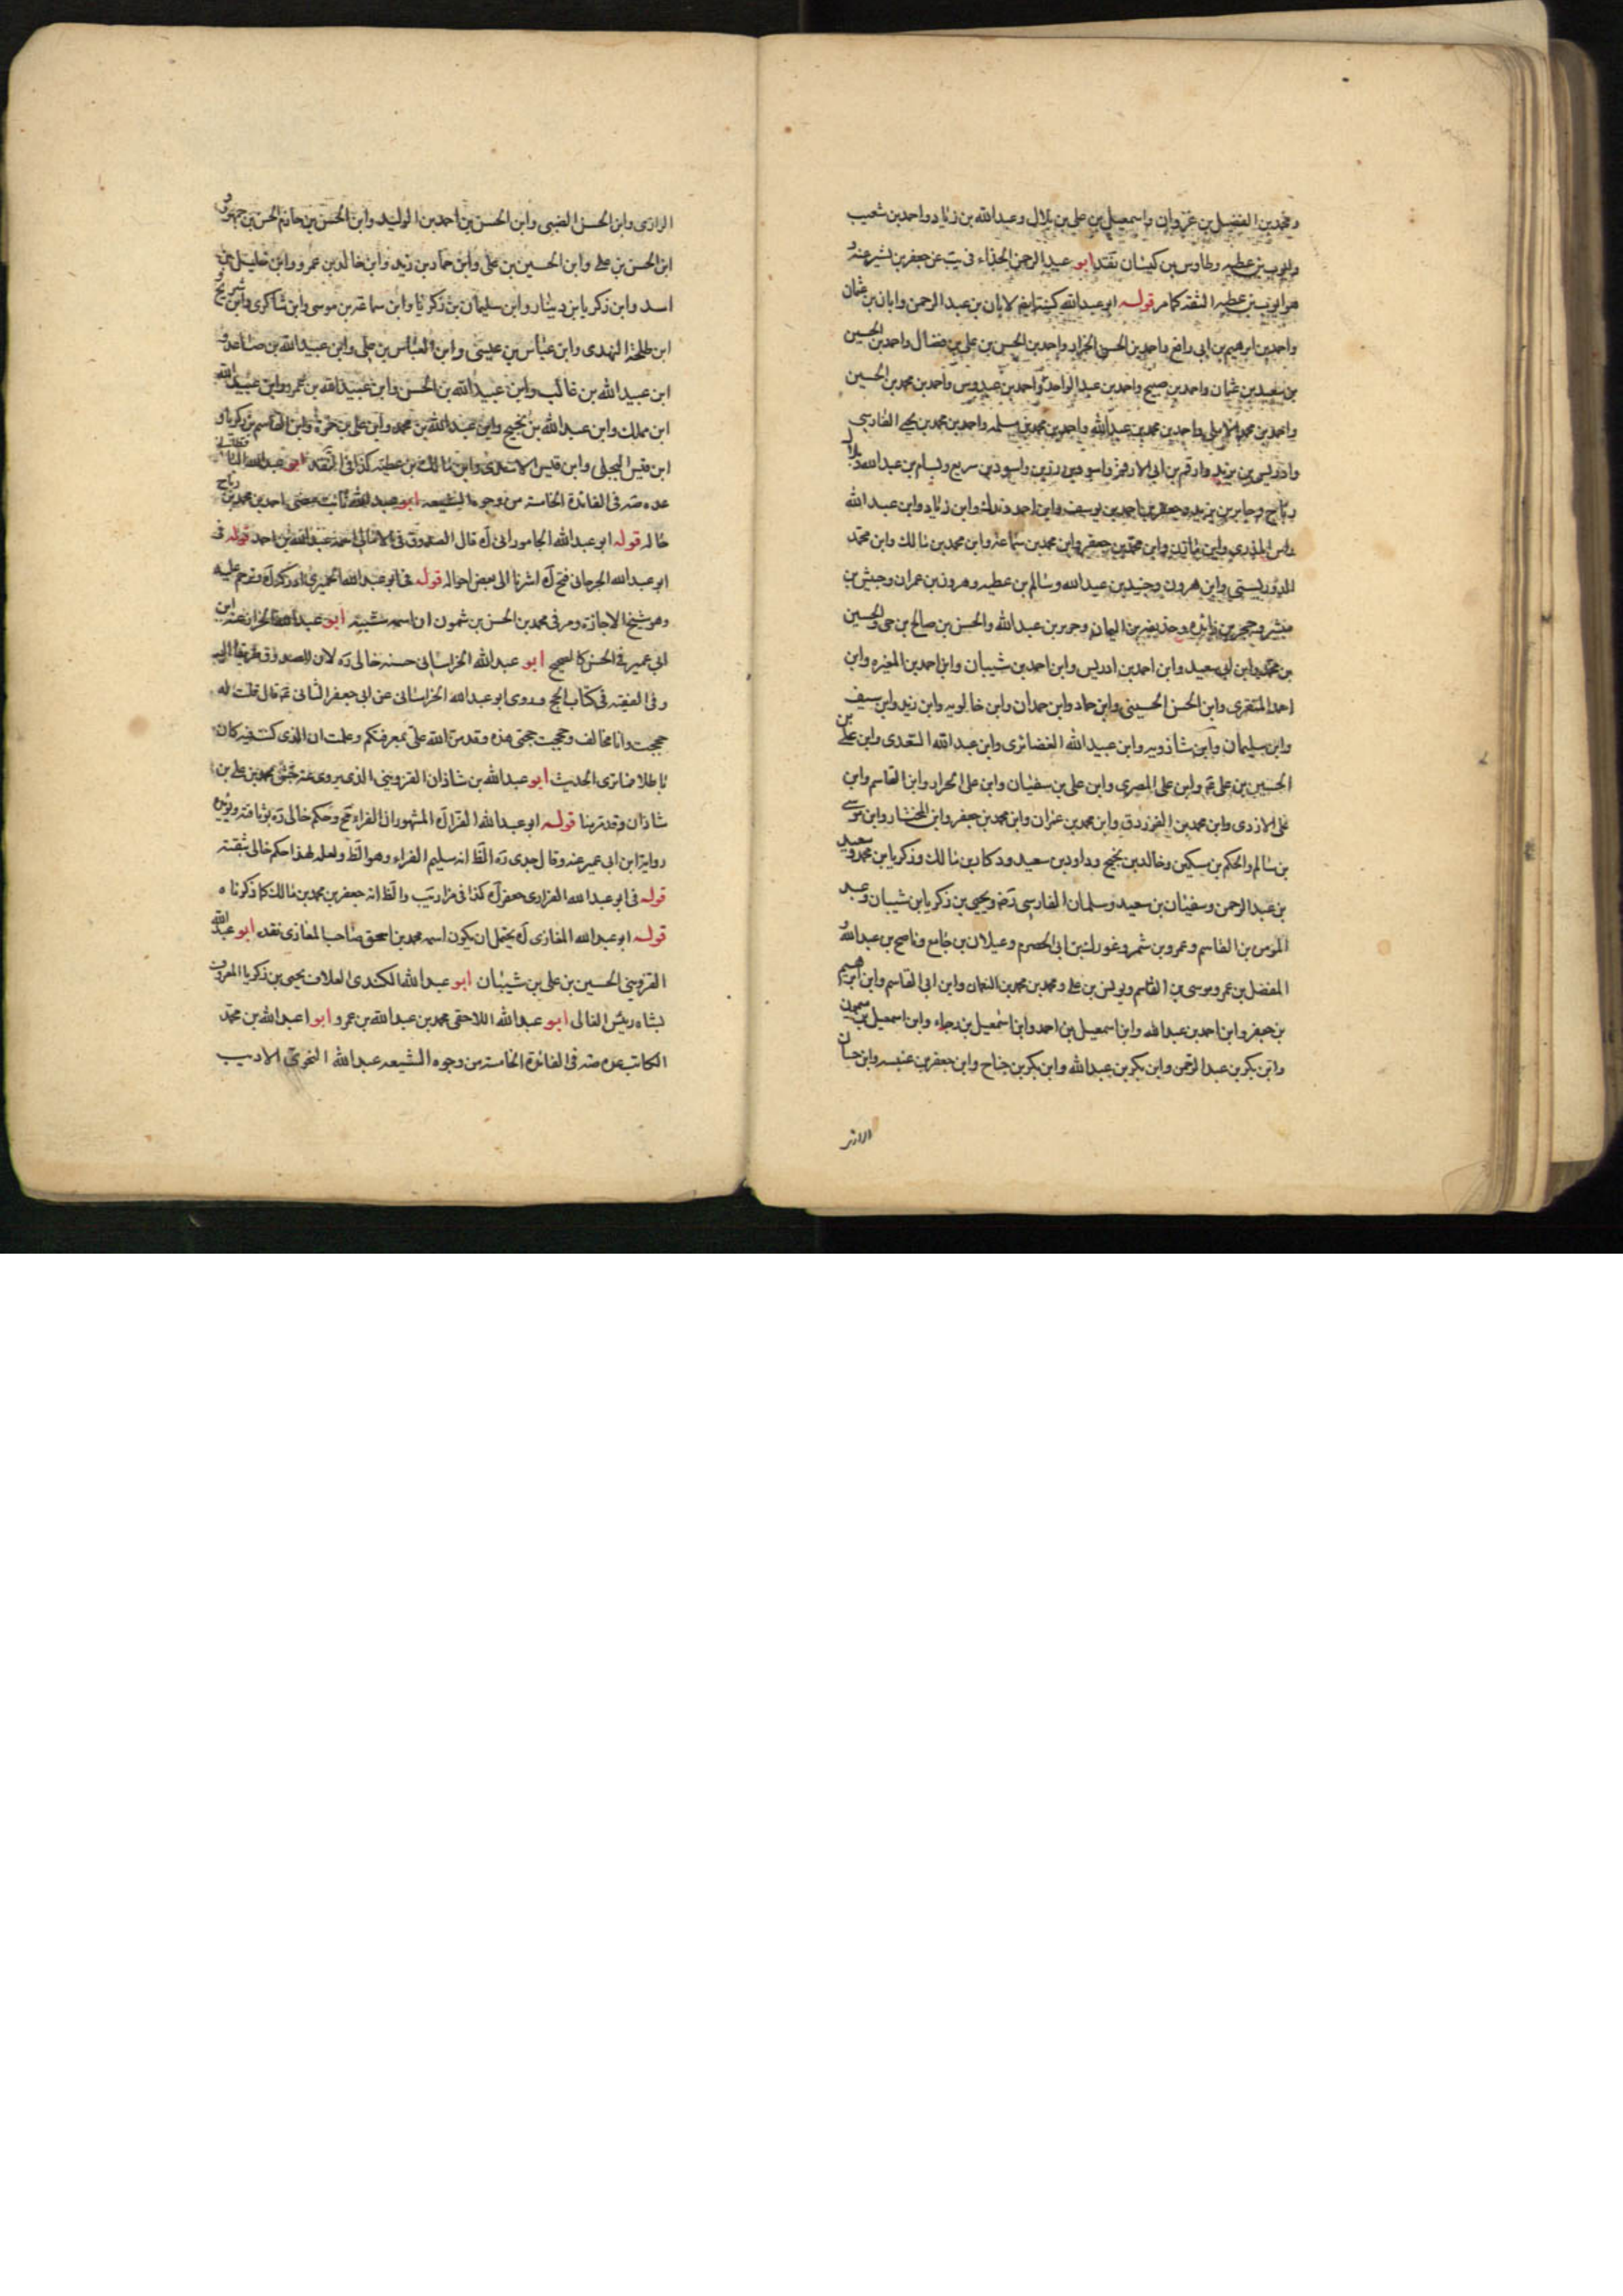 ومحمد بن الفضيل بن غزوان واسمعيل بن علي بن بلال وعبد الله بن زياد واحمد بن شعيب
وايوب بن عطيه وطاوس بن كيسان نقد ابو عبد الرحمن الحذاء في يب عن جعفر بن بشير عنه و
هو ايوب بن عطيه الثقه كما مر قوله ابو عبد الله كنيته ايضا لابان بن عبد الرحمن وابان بن عثمان
واحمد بن ابرهيم بن ابي رافع واحمد بن الحسن الخزاز واحمد بن الحسن بن علي بن فضال واحمد بن الحسين
بن سعيد بن عثمان واحمد بن صبيح واحمد بن عبد الواحد واحمد بن عبدوس واحمد بن محمد بن الحسين
واحمد بن محمد الاملي واحمد بن محمد بن عبد الله واحمد بن محمد بن مسلمه واحمد بن محمد بن يحيى الفارسي
وادريس بن يزيد وارقم بن ابي الارقم واسود بن رزين واسود بن سريع وبسام بن عبد الله وبلال
رباح وجابر بن يزيد وجعفر بن احمد بن يوسف وابن احمد وندك وابن زياد وابن عبد الله
راس المذري وابن مالك وابن محمد بن جعفر وابن محمد بن سماعة وابن محمد بن مالك وابن محمد
الدوريستي وابن هرون وجنيد بن عبد الله وسالم بن عطيه وهرون بن عمران وحبش بن
مبشر وحجر بن زائده وحذيفه بن اليمان وحريز بن عبد الله والحسن بن صالح بن حي والحسين
بن محمد وابن ابي سعيد وابن احمد بن ادريس وابن احمد بن شيبان وابن احمد بن المغيره وابن
احمد المنقري وابن الحسن الحسيني وابن حماد وابن حمدان وابن خالويه وابن زيد وابن سيف
وابن سليمان وابن شاذويه وابن عبيد الله الغضائري وابن عبد الله السعدي وابن علي بن
الحسين بن علي ع وابن علي المصري وابن علي بن سفيان وابن علي الخزاز وابن القاسم وابن
علي الازدي وابن محمد بن الفرزدق وابن محمد بن عمران وابن محمد بن جعفر وابن المختار وابن موسى
بن سالم والحكم بن سكين وخالد بن نجيح وداود بن سعيد ودكا بن مالك وذكريا بن محمد وسعيد
بن عبد الرحمن وسفيان بن سعيد وسلمان الفارسي رض ويحيى بن زكريا بن شيبان وعبد
المومن بن القاسم وعمرو بن شمر وغورك بن ابي الحصرم وغيلان بن جامع وناصح بن عبد الله و
المفضل بن عمر وموسى بن القاسم ويونس بن علي ومحمد بن محمد بن النعمان وابن ابي القاسم وابن ابرهيم
بن جعفر وابن احمد بن عبد الله وابن اسمعيل بن احمد وابن اسمعيل بن رجاء وابن اسمعيل بن ميمون
وابن بكر بن عبد الرحمن وابن بكر بن عبد الله وابن بكر بن جناح وابن جعفر بن عنبسه وابن حسان
الرازى وابن الحسن الضبي وابن الحسن بن احمد بن الوليد وابن الحسن بن حازم الحسن بن جمهور و
ابن الحسن بن علي وابن الحسين بن علي وابن حماد بن زيد وابن خالد بن عمرو وابن خليل بن
اسد وابن زكريا بن دينار وابن سليمان بن زكريا وابن سماعة بن موسى وابن شاكري وابن شريح و
ابن طلحة النهدى وابن عباس بن عيسى وابن العباس بن علي وابن عبيد الله بن صاعد و
ابن عبيد الله بن غالب وابن عبيد الله بن الحسن وابن عبيد الله بن عمرو وابن عبيد الله
ابن مملك وابن عبد الله بن نجيح وابن عبد الله بن محمد وابن علي بن حمزة وابن القاسم بن زكريا و
ابن قيس البجلى وابن قيس الاسدى وابن مالك بن عطيه كذا في النقد ابو عبد الله
عده صه في الفائدة الخامسة من وجوه الشيعه ابو عبد الله احمد بن محمد بن رباح
خاله قوله ابو عبد الله الجاموراني ل قال الصدوق في الامالي عبد الله بن احمد قوله في
ابو عبد الله الجرجاني فتح ل اشرنا الى بعض احواله قوله في ابو عبد الله الحميري وترحم عليه
وهو شيخ الاجازة ومر في محمد بن الحسن بن شمون ان اسمه شيبه ابو عبد الله الخزاز عنه ابن
ابي عمير في الحسن كالصحيح ابو عبد الله الخراساني حسنه خالي ره لان للصدوق طريقا اليه
وفي الفقيه في كتاب الحج وروى ابو عبد الله الخراساني عن ابي جعفر الثاني ع قال قلت له
حججت وانا مخالف وحججت حجتي هذه وقد من الله علي بمعرفتكم وعلمت ان الذي كنت فيه كان
باطلا فما ترى الحديث ابو عبد الله بن شاذان القزويني الذي يروى عنه جش محمد بن علي بن
شاذان وقد تربنا قوله ابو عبد الله الفراء ل المشهور ان الفراء مح وحكم خالي ره بوثاقته ويؤيده
رواية ابن ابي عمير عنه وقال جدى ره الظ انه سليم الفراء وهو الظ ولعله لهذا حكم خالي بثقته
قوله في ابو عبد الله الفزارى جعفر ل كذا في مزار يب والظ انه جعفر بن محمد بن مالك كما ذكرناه
قوله ابو عبد الله المغازى ل يحتمل ان يكون اسمه محمد بن اسحق صاحب المغازى نقد ابو عبد الله
القزويني الحسين بن علي بن شيبان ابو عبد الله الكندى العلاف يحيى بن زكريا المعروف
بشاه رئيس الغالى ابو عبد الله اللاحقى محمد بن عبد الله بن عمرو ابو عبد الله بن محمد
الكاتب عده صه في الفائدة الخامسة من وجوه الشيعه عبد الله النحوي الاديب